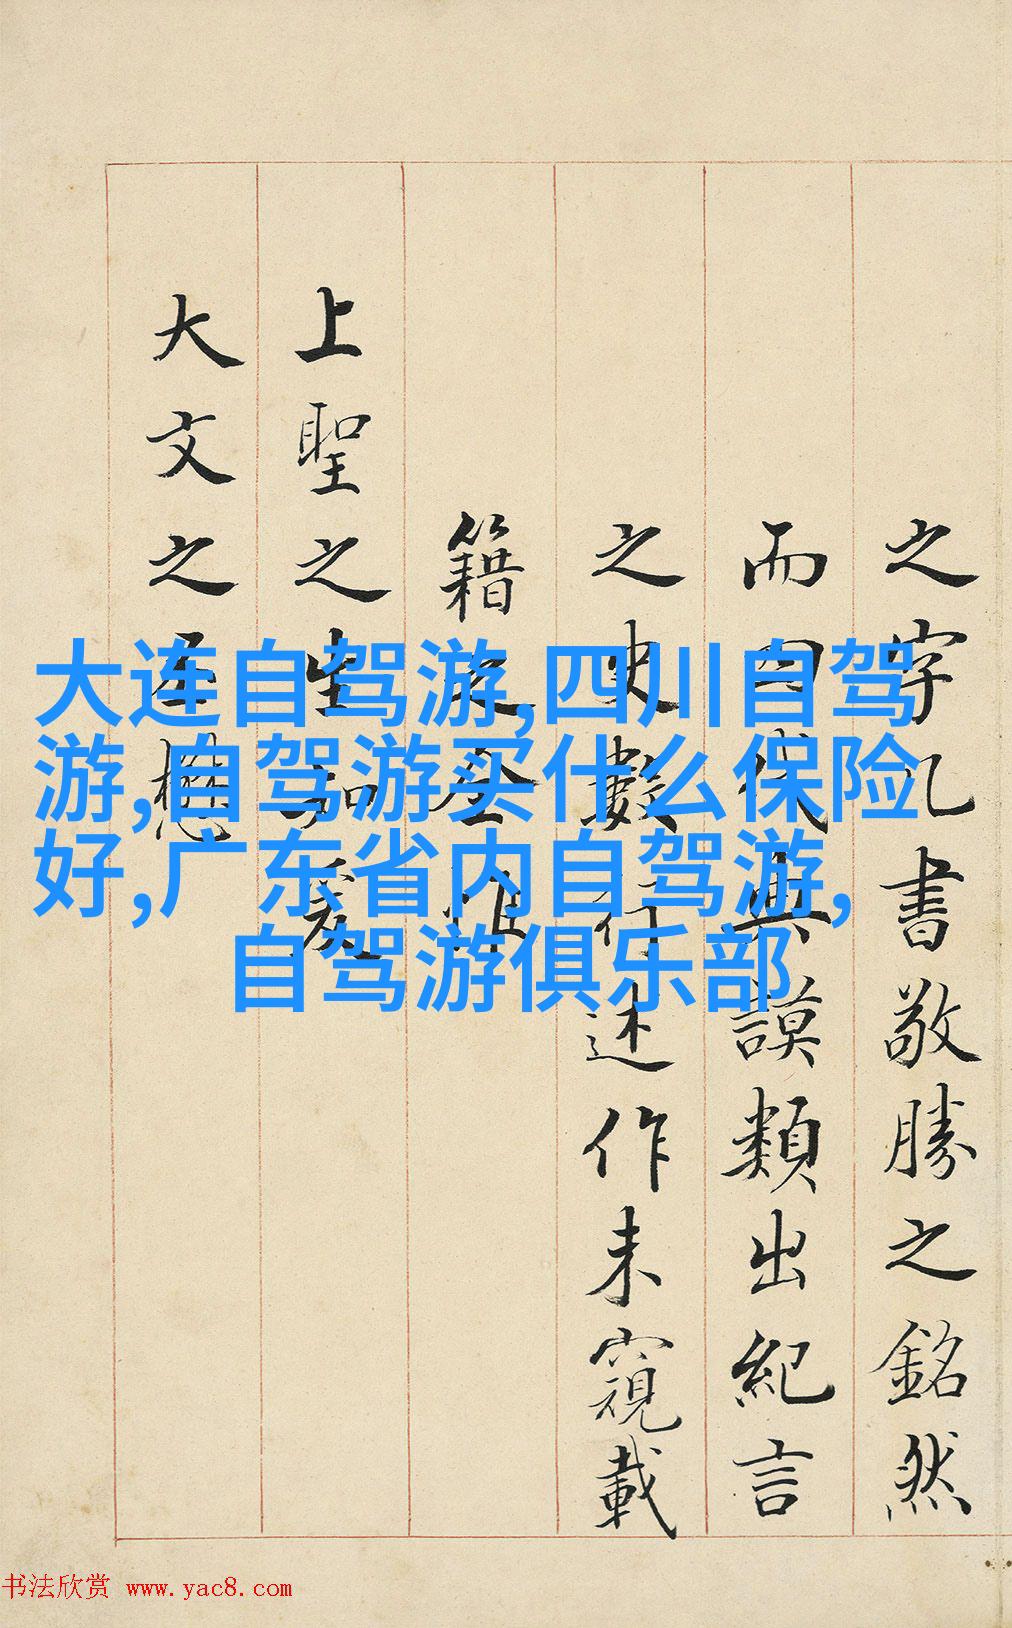 之字書敬勝之銘然
而四代典謨類出紀言
之史數行述作未窺載
籍之全惟
上聖之生知爰
大文之丕懋
大连自驾游,四川自驾
游,自驾游买什么保险
好,广东省内自驾游,
自驾游俱乐部
书法欣赏 www.yac8.com